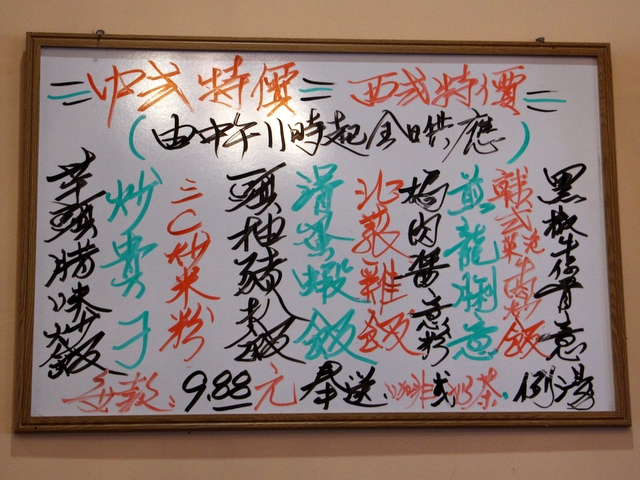 中式特價 西式特價
(由中午11時起全日供應)
黑椒牛仔骨意
韓式泡菜牛肉炒飯
煎龍脷意
肉醬意粉
北菇雞飯
滑蛋蝦飯
頭抽豬扒飯
三C炒米粉
炒貴刁
芋頭臘味炒飯
每款:9.88元奉送.咖啡或奶茶.例湯